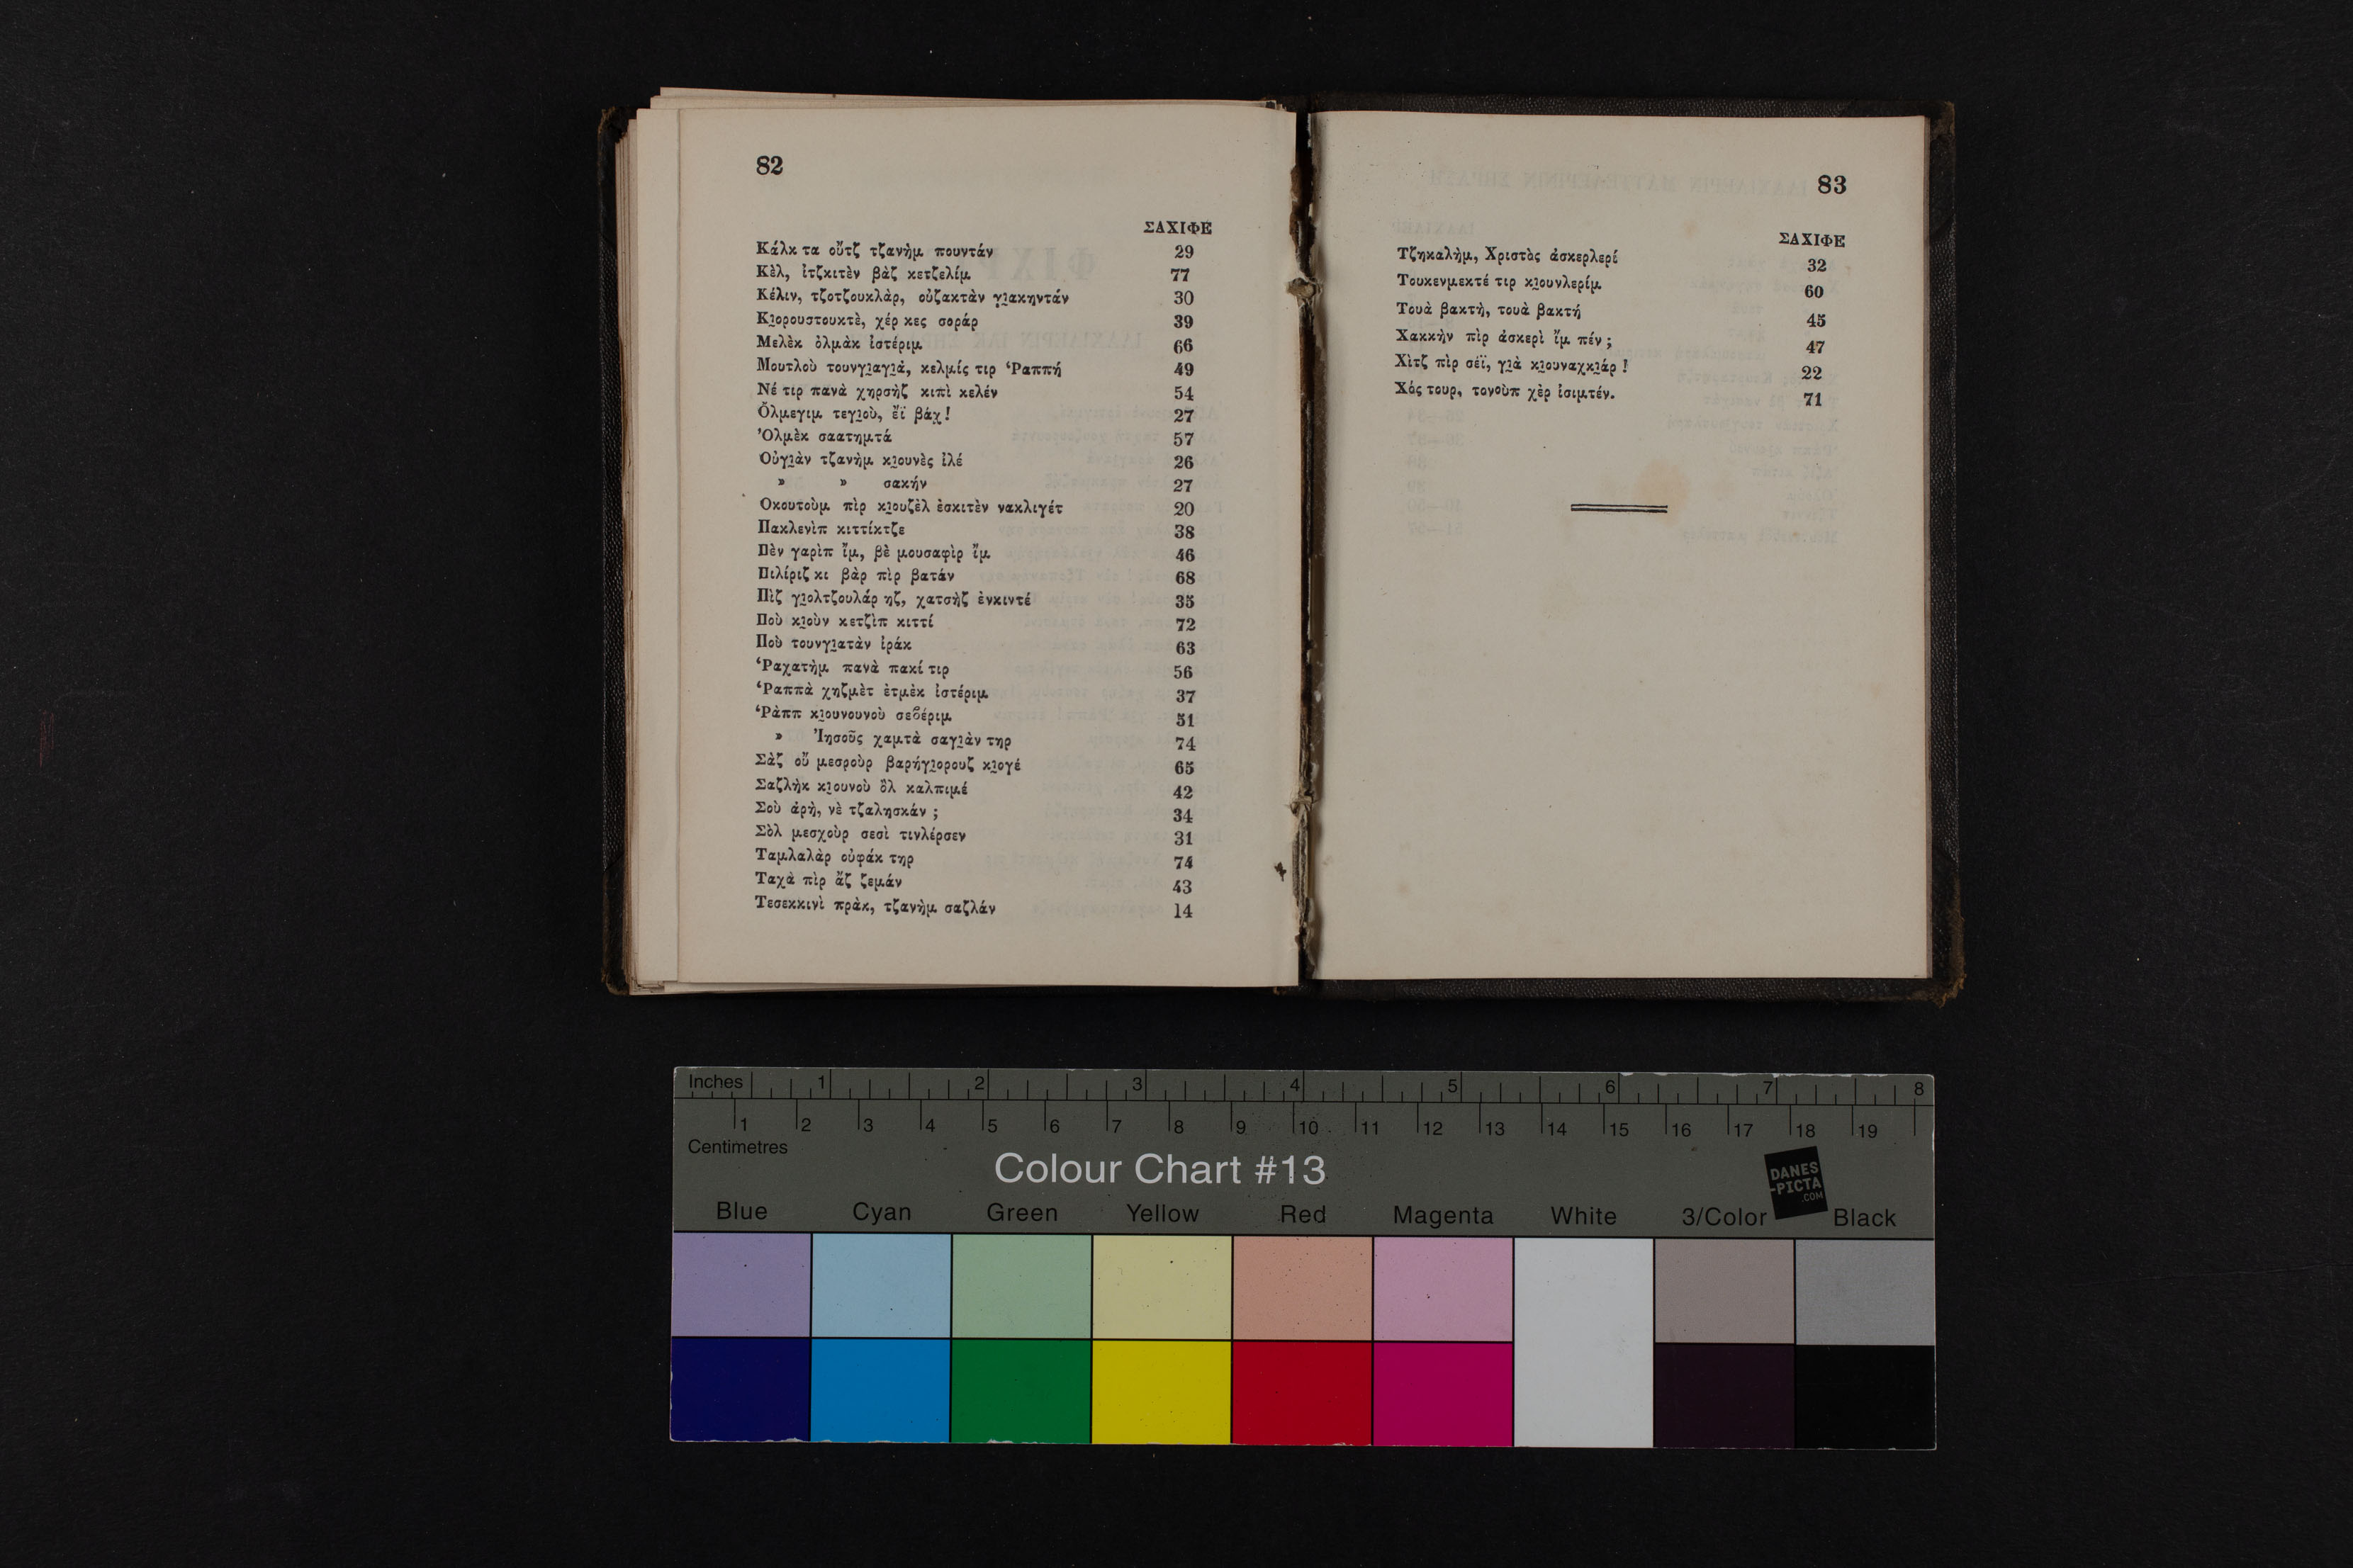 82
ΣΑΧΙΦΕ
Κάλκ τα οὔτζ τζανὴμ πουντάν 29
Κὲλ, ἰτζκιτὲν βὰζ κετζελίμ 77
Κέλιν, τζοτζουκλὰρ, οὐζακτὰν γι̲ακηντάν 30
Κι̲ορουστουκτὲ, χέρ κες σοράρ 39
Μελὲκ ὀλμὰκ ἰστέριμ 66
Μουτλοὺ τουνγι̲αγι̲ὰ, κελμίς τιρ Ῥαππή 49
Νέ τιρ πανὰ χηρσὴζ κιπὶ κελέν 54
Ὄλμεγιμ τεγι̲οὺ, ἔϊ βάχ! 27
Ὀλμὲκ σαατημτά 57
Οὐγι̲ὰν τζανὴμ κι̲ουνὲς ἰλέ 26
» » σακήν 27
Οκουτοὺμ πὶρ κι̲ουζὲλ ἐσκιτὲν νακλιγέτ 20
Πακλενὶπ κιττίκτζε 38
Πὲν γαρὶπ ἴμ, βὲ μουσαφὶρ ἴμ 46
Πιλίριζ κι βὰρ πὶρ βατάν 68
Πὶζ γι̲ολτζουλάρ ηζ, χατσὴζ ἐνκιντέ 35
Ποὺ κι̲οὺν κετζὶπ κιττί 72
Ποὺ τουνγι̲ατὰν ἰράκ 63
Ῥαχατὴμ πανὰ πακί τιρ 56
Ῥαππὰ χηζμὲτ ἐτμὲκ ἰστέριμ 37
Ῥὰππ κι̲ουνουνοὺ σεϐέριμ 51
» Ἰησοῦς χαμτὰ σαγι̲ὰν τηρ 74
Σὰζ οὔ μεσροὺρ βαρήγι̲ορουζ κι̲ογέ 65
Σαζλὴκ κι̲ουνοὺ ὂλ καλπιμέ 42
Σοὺ ἀρὴ, νὲ τζαλησκάν ; 34
Σὸλ μεσχοὺρ σεσὶ τινλέρσεν 31
Ταμλαλὰρ οὐφάκ τηρ 74
Ταχὰ πὶρ ἂζ ζεμάν 43
Τεσεκκινὶ πρὰκ, τζανὴμ σαζλάν 14
83
ΣΑΧΙΦΕ
Τζηκαλὴμ, Χριστὸς ἀσκερλερί 32
Τουκενμεκτέ τιρ κι̲ουνλερίμ 60
Τουὰ βακτὴ, τουὰ βακτή 45
Χακκὴν πὶρ ἀσκερὶ ἴμ πέν ; 47
Χὶτζ πὶρ σέϊ, γι̲ὰ κι̲ουναχκι̲άρ ! 22
Χός τουρ, τονοὺπ χὲρ ἰσιμτέν. 71
Inches 1 2 3 4 5 6 7 8
1 2 3 4 5 6 7 8 9 10 11 12 13 14 15 16 17 18 19
Centimetres
Colour Chart #13
DANES
-PICTA
.COM
Blue Cyan Green Yellow Red Magenta White 3/Color Black